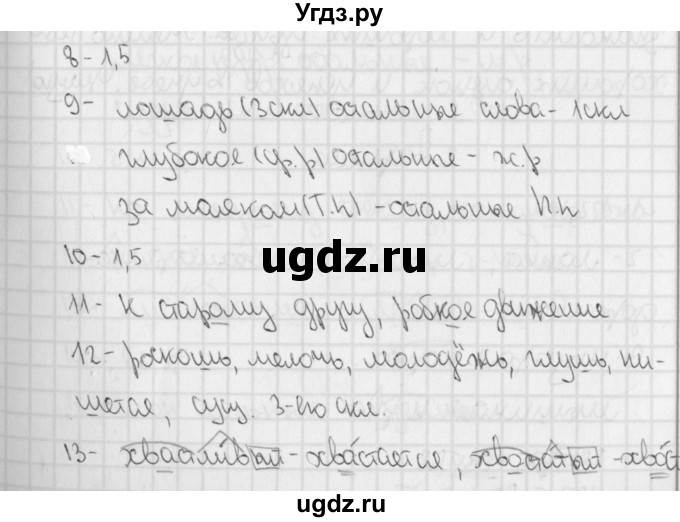 УГДЗ.РУ
8-1,5
9- лошадь (3 скл) остальные слова - 1 скл
глубокое (ср.р) остальные - ж.р
за маяком (Т.п) - остальные П.п
ugdz.ru
10-1,5
11- К старому другу, робкое движение
12- роскошь, мелочь, молодёжь, глушь, пи-
шется, сущ. 3-его скл.
13- хвастливый - хвастается, хвостатый - хвост
ugdz.ru